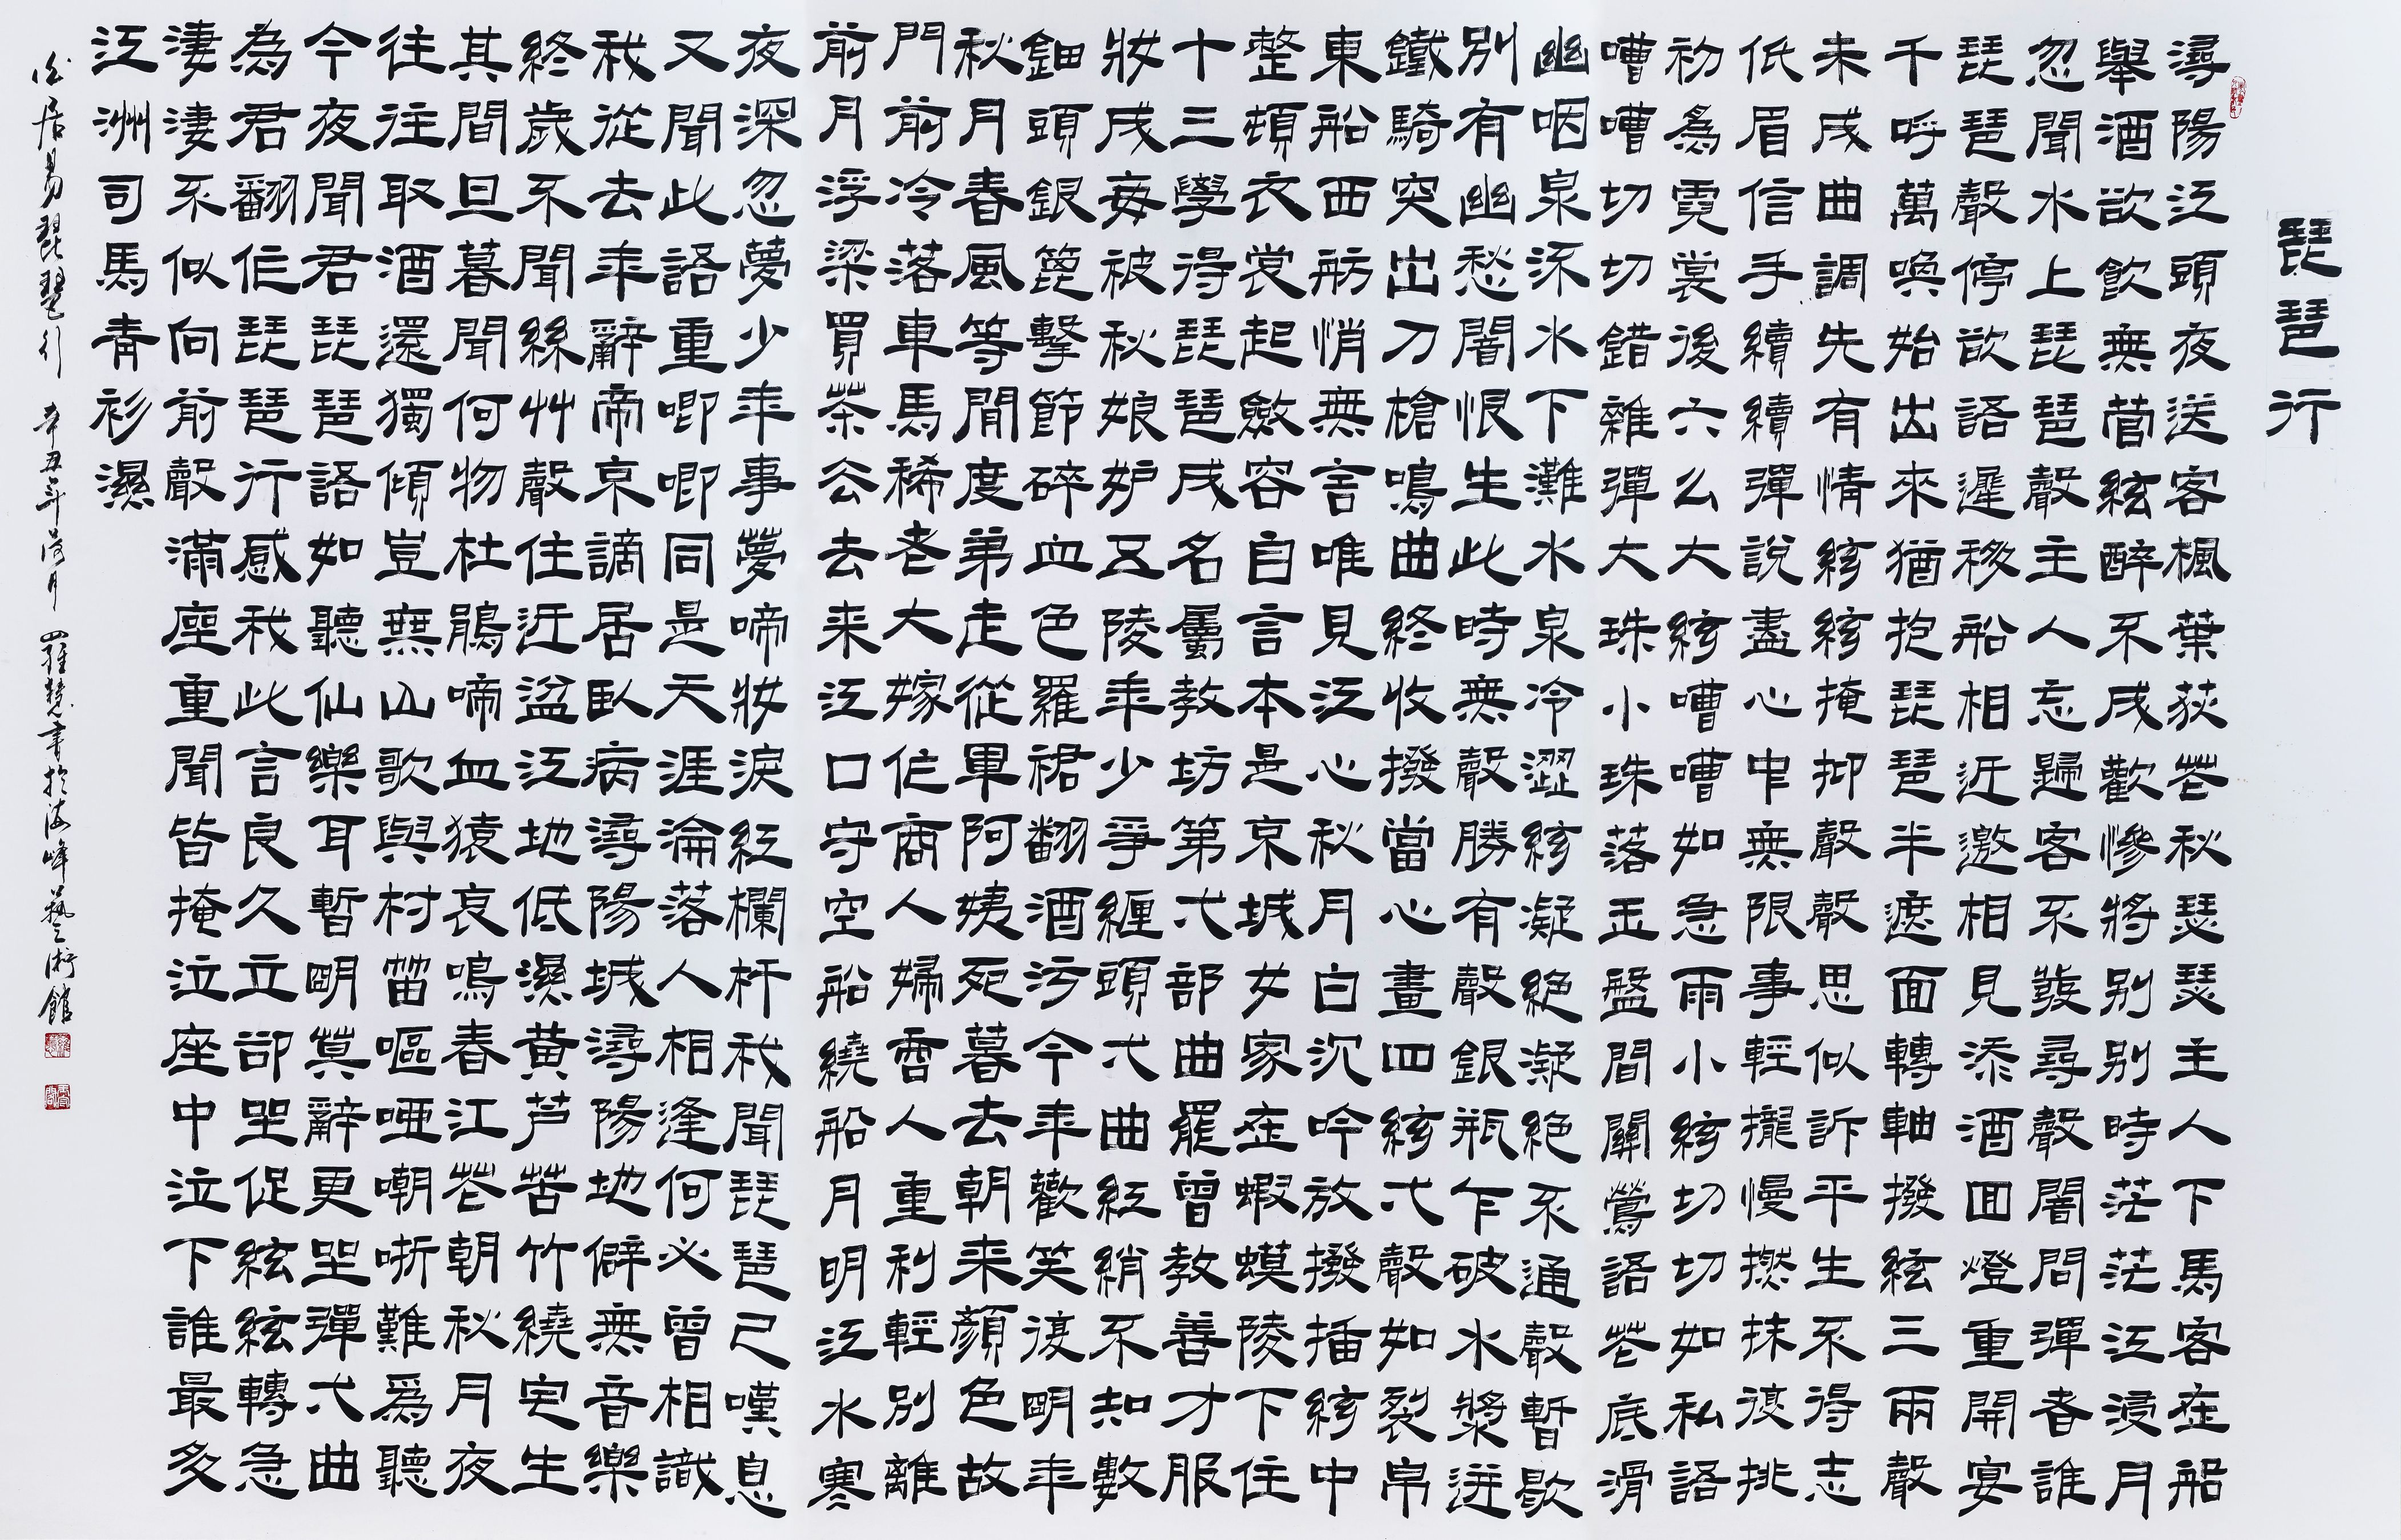 琵琶行
潯陽江頭夜送客楓葉荻花秋瑟瑟主人下馬客在船
舉酒欲飲無管絃醉不成歡慘將別別時茫茫江浸月
忽聞水上琵琶聲主人忘歸客不發尋聲闇問彈者誰
琵琶聲停欲語遲移船相近邀相見添酒回燈重開宴
千呼萬喚始出來猶抱琵琶半遮面轉軸撥絃三兩聲
未成曲調先有情絃絃掩抑聲聲思似訴平生不得志
低眉信手續續彈說盡心中無限事輕攏慢撚抹復挑
初為霓裳後六么大絃嘈嘈如急雨小絃切切如私語
嘈嘈切切錯雜彈大珠小珠落玉盤間關鶯語花底滑
幽咽泉流水下灘水泉冷澀絃凝絕凝絕不通聲暫歇
別有幽愁闇恨生此時無聲勝有聲銀瓶乍破水漿迸
鐵騎突出刀槍鳴曲終收撥當心畫四絃弌聲如裂帛
東船西舫悄無言唯見江心秋月白沉吟放撥插絃中
整頓衣裳起斂容自言本是京城女家在蝦蟆陵下住
十三學得琵琶成名屬教坊第弌部曲罷曾教善才服
妝成每被秋娘妒五陵年少爭纏頭弌曲紅綃不知數
鈿頭銀篦擊節碎血色羅裙翻酒污今年歡笑復明年
秋月春風等閒度弟走從軍阿姨死暮去朝来顏色故
門前冷落車馬稀老大嫁作商人婦商人重利輕別離
前月浮梁買茶去去来江口守空船繞船月明江水寒
夜深忽夢少年事夢啼妝淚紅欄杆我聞琵琶已嘆息
又聞此語重唧唧同是天涯淪落人相逢何必曾相識
我從去年辭帝京謫居臥病潯陽城潯陽地僻無音樂
終歲不聞絲竹聲住近湓江地低濕黃芦苦竹繞宅生
其間旦暮聞何物杜鵑啼血猿哀鳴春江花朝秋月夜
往往取酒還獨傾豈無山歌與村笛嘔啞嘲哳難為聽
今夜聞君琵琶語如聽仙樂耳暫明莫辭更坐彈弌曲
為君翻作琵琶行感我此言良久立卻坐促絃絃轉急
淒淒不似向前聲滿座重聞皆掩泣座中泣下誰最多
江洲司馬青衫濕
白居易琵琶行 辛丑年荷月 羅慧書於海峰藝術館